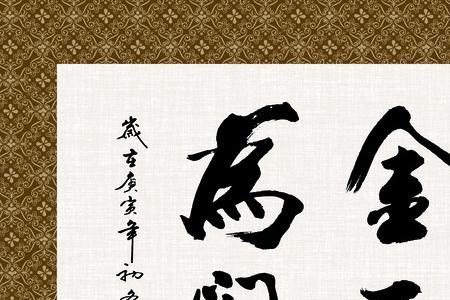 金
為
歲在庚寅年初